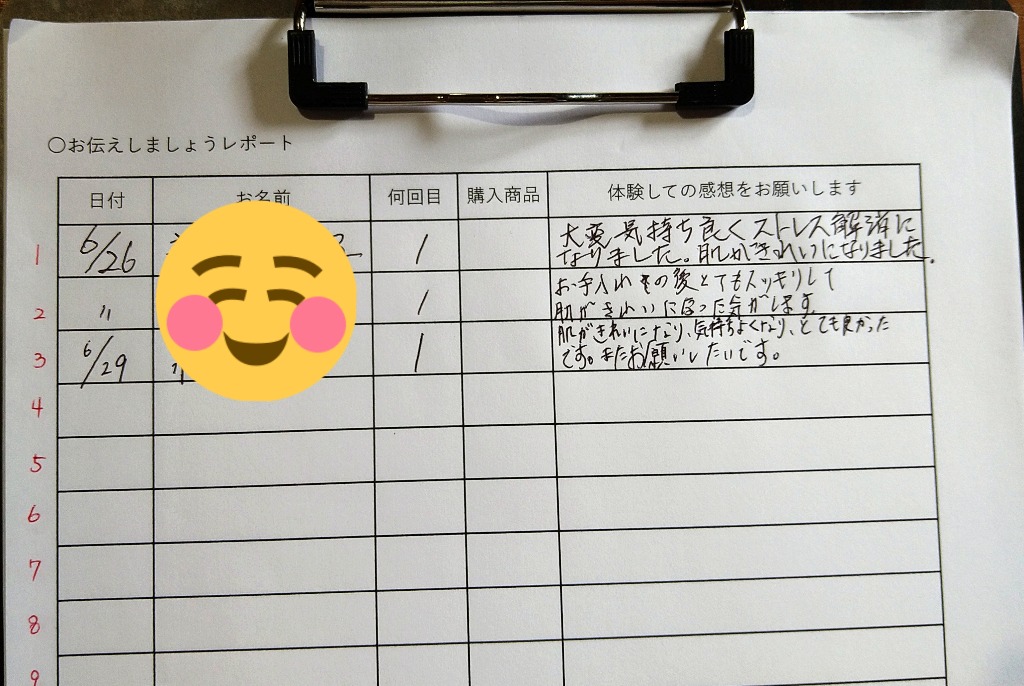 ○お伝えしましょうレポート
日付 お名前 何回目 購入商品 体験しての感想をお願いします
1 6/26 1 大変気持ち良くストレス解消に
なりました。肌がきれいになりました。
2 〃 1 お手入れその後とてもスッキリして
肌がきれいになった気がします。
3 6/29 1 肌がきれいになり、気持ちよくなり、とても良かった
です。またお願いしたいです。
4
5
6
7
8
9